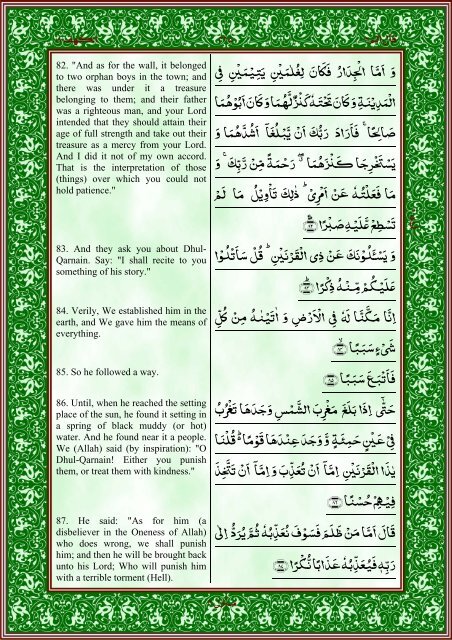 82. "And as for the wall, it belonged
to two orphan boys in the town; and
there was under it a treasure
belonging to them; and their father
was a righteous man, and your Lord
intended that they should attain their
age of full strength and take out their
treasure as a mercy from your Lord.
And I did it not of my own accord.
That is the interpretation of those
(things) over which you could not
hold patience."
وَ اَمَّا الْجِدَارُ فَكَانَ لِغُلٰمَيْنِ يَتِيْمَيْنِ فِى
الْمَدِيْنَةِ وَ كَانَ تَحْتَهٗ كَنْزٌ لَّهُمَا وَ كَانَ اَبُوْهُمَا
صَالِحًا ۚ فَاَرَادَ رَبُّكَ اَنْ يَّبْلُغَاۤ اَشُدَّهُمَا وَ
يَسْتَخْرِجَا كَنْزَهُمَا ۖ رَحْمَةً مِّنْ رَّبِّكَ ۚ وَ
مَا فَعَلْتُهٗ عَنْ اَمْرِىْ ؕ ذٰلِكَ تَاْوِيْلُ مَا لَمْ
تَسْطِعْ عَّلَيْهِ صَبْرًا
83. And they ask you about Dhul-
Qarnain. Say: "I shall recite to you
something of his story."
وَ يَسْـَٔلُوْنَكَ عَنْ ذِى الْقَرْنَيْنِ ؕ قُلْ سَاَتْلُوْا
عَلَيْكُمْ مِّنْهُ ذِكْرًا
84. Verily, We established him in the
earth, and We gave him the means of
everything.
اِنَّا مَكَّنَّا لَهٗ فِى الْاَرْضِ وَ اٰتَيْنٰهُ مِنْ كُلِّ
شَىْءٍ سَبَبًا
85. So he followed a way.
فَاَتْبَعَ سَبَبًا
86. Until, when he reached the setting
place of the sun, he found it setting in
a spring of black muddy (or hot)
water. And he found near it a people.
We (Allah) said (by inspiration): "O
Dhul-Qarnain! Either you punish
them, or treat them with kindness."
حَتّٰۤى اِذَا بَلَغَ مَغْرِبَ الشَّمْسِ وَجَدَهَا تَغْرُبُ
فِىْ عَيْنٍ حَمِئَةٍ وَّ وَجَدَ عِنْدَهَا قَوْمًا ؕ قُلْنَا
يٰذَا الْقَرْنَيْنِ اِمَّاۤ اَنْ تُعَذِّبَ وَ اِمَّاۤ اَنْ تَتَّخِذَ
فِيْهِمْ حُسْنًا
87. He said: "As for him (a
disbeliever in the Oneness of Allah)
who does wrong, we shall punish
him; and then he will be brought back
unto his Lord; Who will punish him
with a terrible torment (Hell).
قَالَ اَمَّا مَنْ ظَلَمَ فَسَوْفَ نُعَذِّبُهٗ ثُمَّ يُرَدُّ اِلٰى
رَبِّهٖ فَيُعَذِّبُهٗ عَذَابًا نُّكْرًا